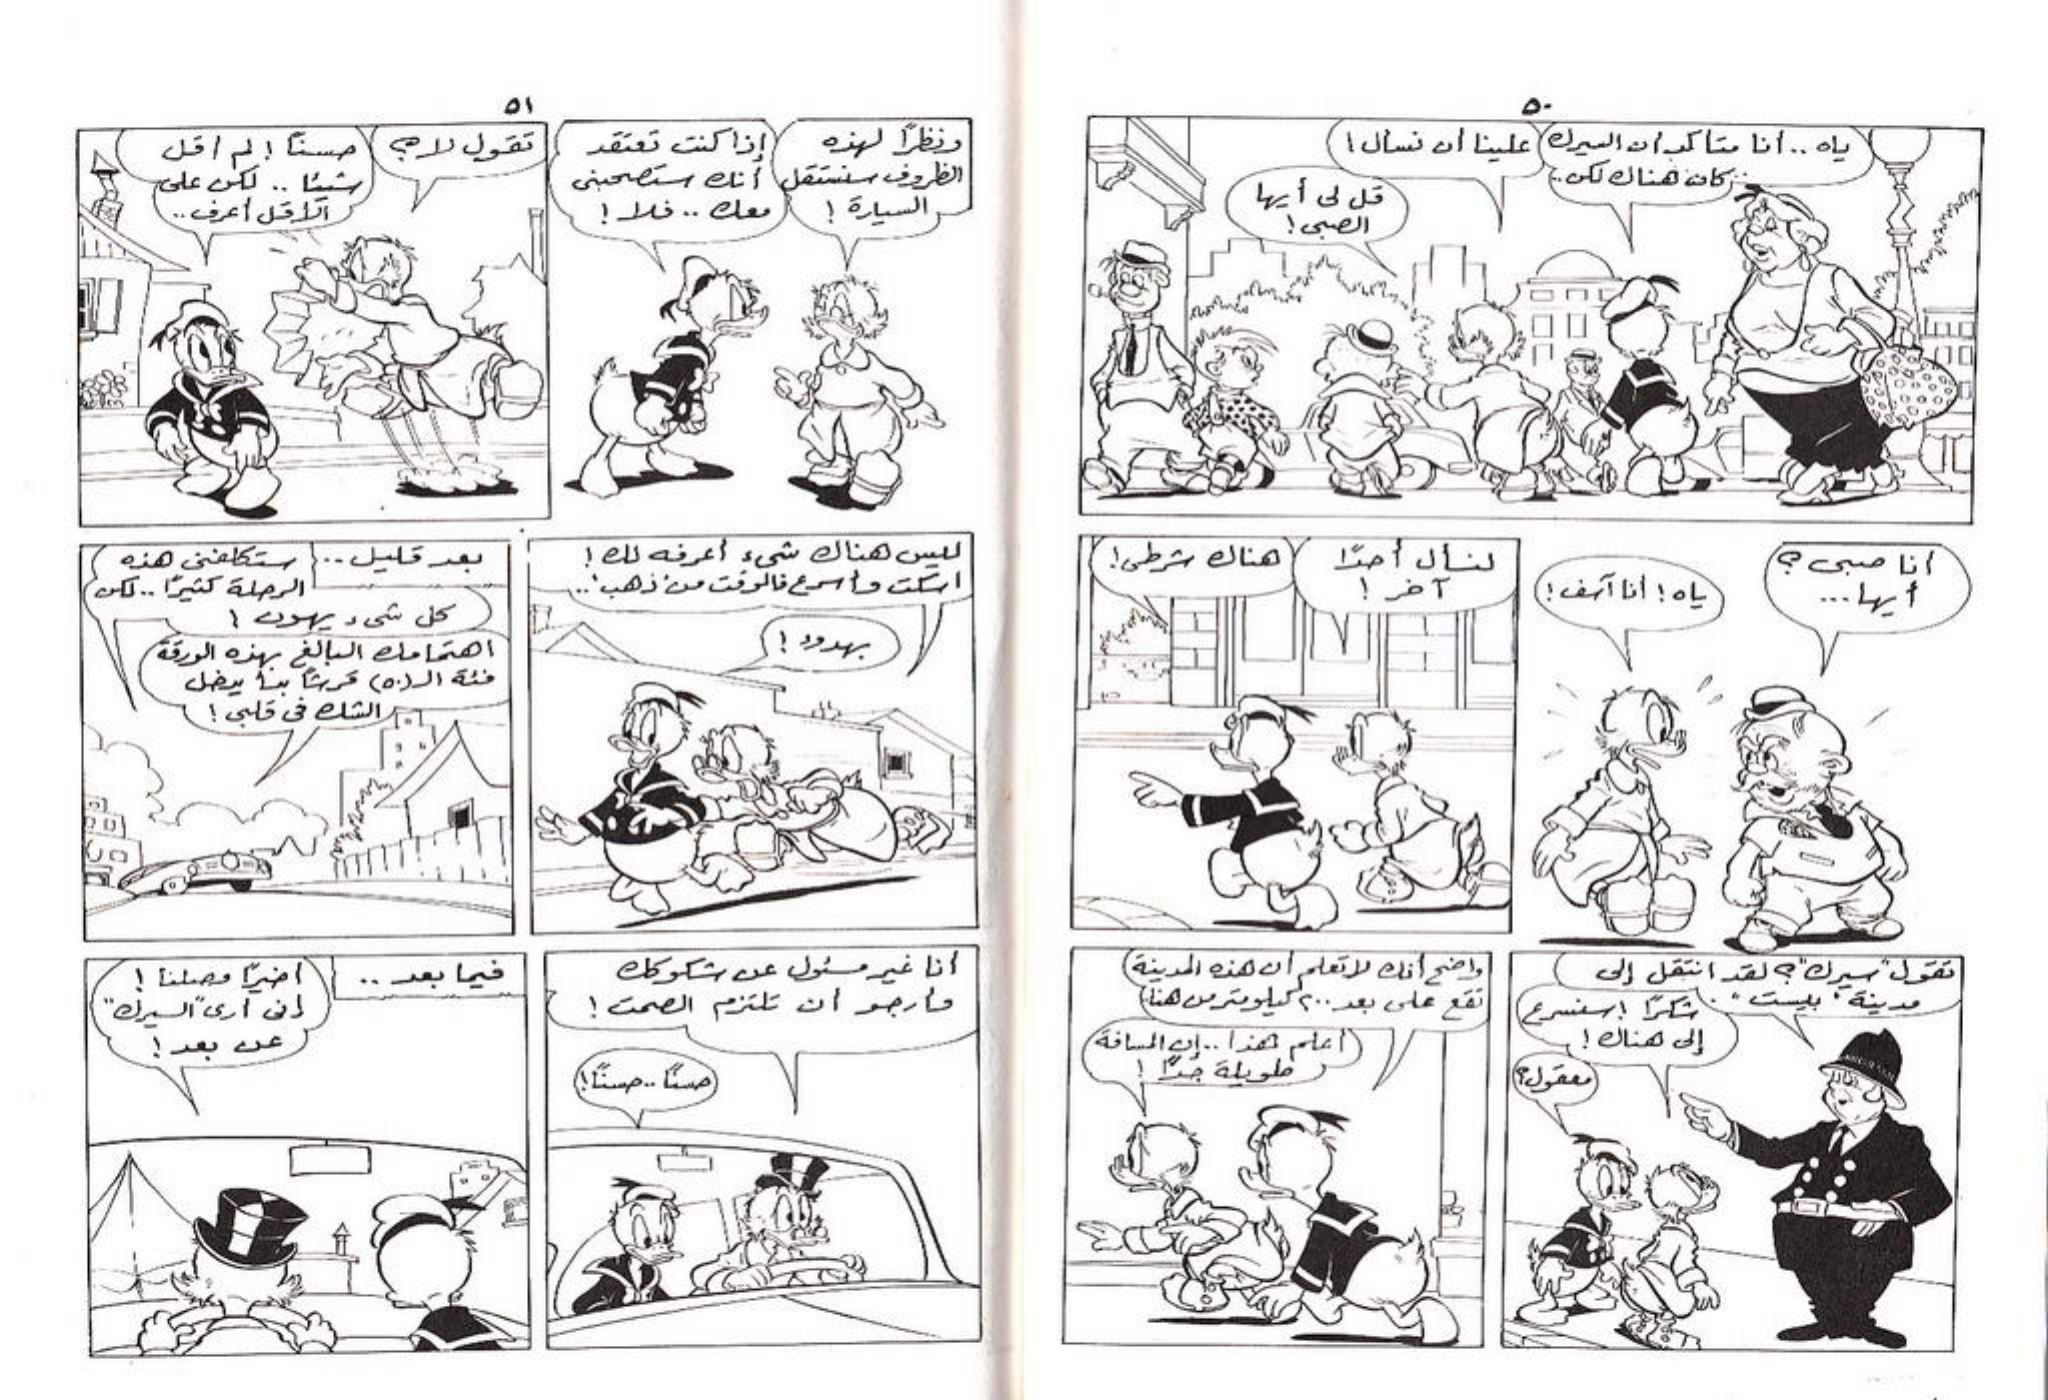 ٥٠
ياه .. أنا متأكد أن السيرك
كان هناك لكن..
علينا أن نسأل!
قل لى أيها
الصبى!
أنا صبى؟
أيها...
ياه! أنا آسف!
لنسأل أحدًا
آخر!
هناك شرطى!
تقول "سيرك"؟ لقد انتقل إلى
مدينة "بليست".
شكرًا! سنسرع
إلى هناك!
معقول؟
واضح أنك لا تعلم أن هذه المدينة
تقع على بعد ٢٠٠ كيلومتر من هنا!
أعلم هذا .. إن المسافة
طويلة جدًا!
٥١
ونظرًا لهذه
الظروف سنستقل
السيارة!
إذا كنت تعتقد
أنك ستصحبنى
معك .. فلا!
تقول لا؟
حسنًا! لم أقل
شيئًا .. لكن على
الأقل أعرف..
ليس هناك شىء أعرفه لك!
اسكت وأسرع فالوقت من ذهب!..
بهدوء!
بعد قليل ..
ستكلفنى هذه
الرحلة كثيرًا .. لكن
كل شىء يهون!
اهتمامك البالغ بهذه الورقة
فئة الـ(٥٠) قرشًا بدأ يدخل
الشك فى قلبى!
أنا غير مسئول عن شكوكك
وأرجو أن تلتزم الصمت!
حسنًا .. حسنًا!
فيما بعد ..
أخيرًا وصلنا!
إنى أرى "السيرك"
عن بعد!